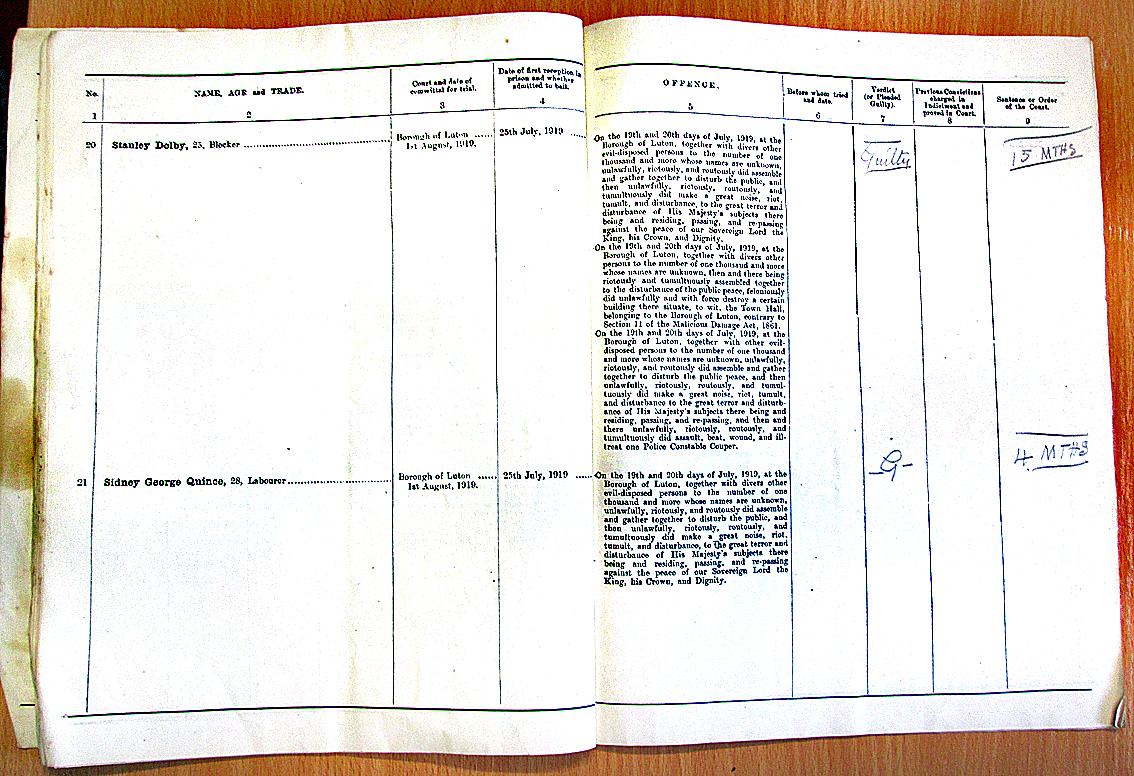 No.
NAME, AGE and TRADE.
Court and date of
committal for trial.
Date of first reception in
prison and whether
admitted to bail.
OFFENCE.
Before whom tried
and date.
Verdict
(or Pleaded
Guilty).
Previous Convictions
charged in
Indictment and
proved in Court.
Sentence or Order
of the Court.
1
2
3
4
5
6
7
8
9
20
Stanley Dolby, 25, Blocker
Borough of Luton ......
1st August, 1919.
25th July, 1919 ......
On the 19th and 20th days of July, 1919, at the
Borough of Luton, together with divers other
evil-disposed persons to the number of one
thousand and more whose names are unknown,
unlawfully, riotously, and routously did assemble
and gather together to disturb the public, and
then unlawfully, riotously, routously, and
tumultuously did make a great noise, riot,
tumult, and disturbance, to the great terror and
disturbance of His Majesty's subjects there
being and residing, passing, and re-passing
against the peace of our Sovereign Lord the
King, his Crown, and Dignity.
On the 19th and 20th days of July, 1919, at the
Borough of Luton, together with divers other
persons to the number of one thousand and more
whose names are unknown, then and there being
riotously and tumultuously assembled together
to the disturbance of the public peace, feloniously
did unlawfully and with force destroy a certain
building there situate, to wit, the Town Hall,
belonging to the Borough of Luton, contrary to
Section 11 of the Malicious Damage Act, 1861.
On the 19th and 20th days of July, 1919, at the
Borough of Luton, together with other evil-
disposed persons to the number of one thousand
and more whose names are unknown, unlawfully,
riotously, and routously did assemble and gather
together to disturb the public peace, and then
unlawfully, riotously, routously, and tumul-
tuously did make a great noise, riot, tumult,
and disturbance to the great terror and disturb-
ance of His Majesty's subjects there being and
residing, passing, and re-passing, and then and
there unlawfully, riotously, routously, and
tumultuously did assault, beat, wound, and ill-
treat one Police Constable Couper.
Guilty
15 MTHS
21
Sidney George Quince, 28, Labourer
Borough of Luton ......
1st August, 1919.
25th July, 1919 ......
On the 19th and 20th days of July, 1919, at the
Borough of Luton, together with divers other
evil-disposed persons to the number of one
thousand and more whose names are unknown,
unlawfully, riotously, and routously did assemble
and gather together to disturb the public, and
then unlawfully, riotously, routously, and
tumultuously did make a great noise, riot,
tumult, and disturbance, to the great terror and
disturbance of His Majesty's subjects there
being and residing, passing, and re-passing
against the peace of our Sovereign Lord the
King, his Crown, and Dignity.
-G-
4 MTHS